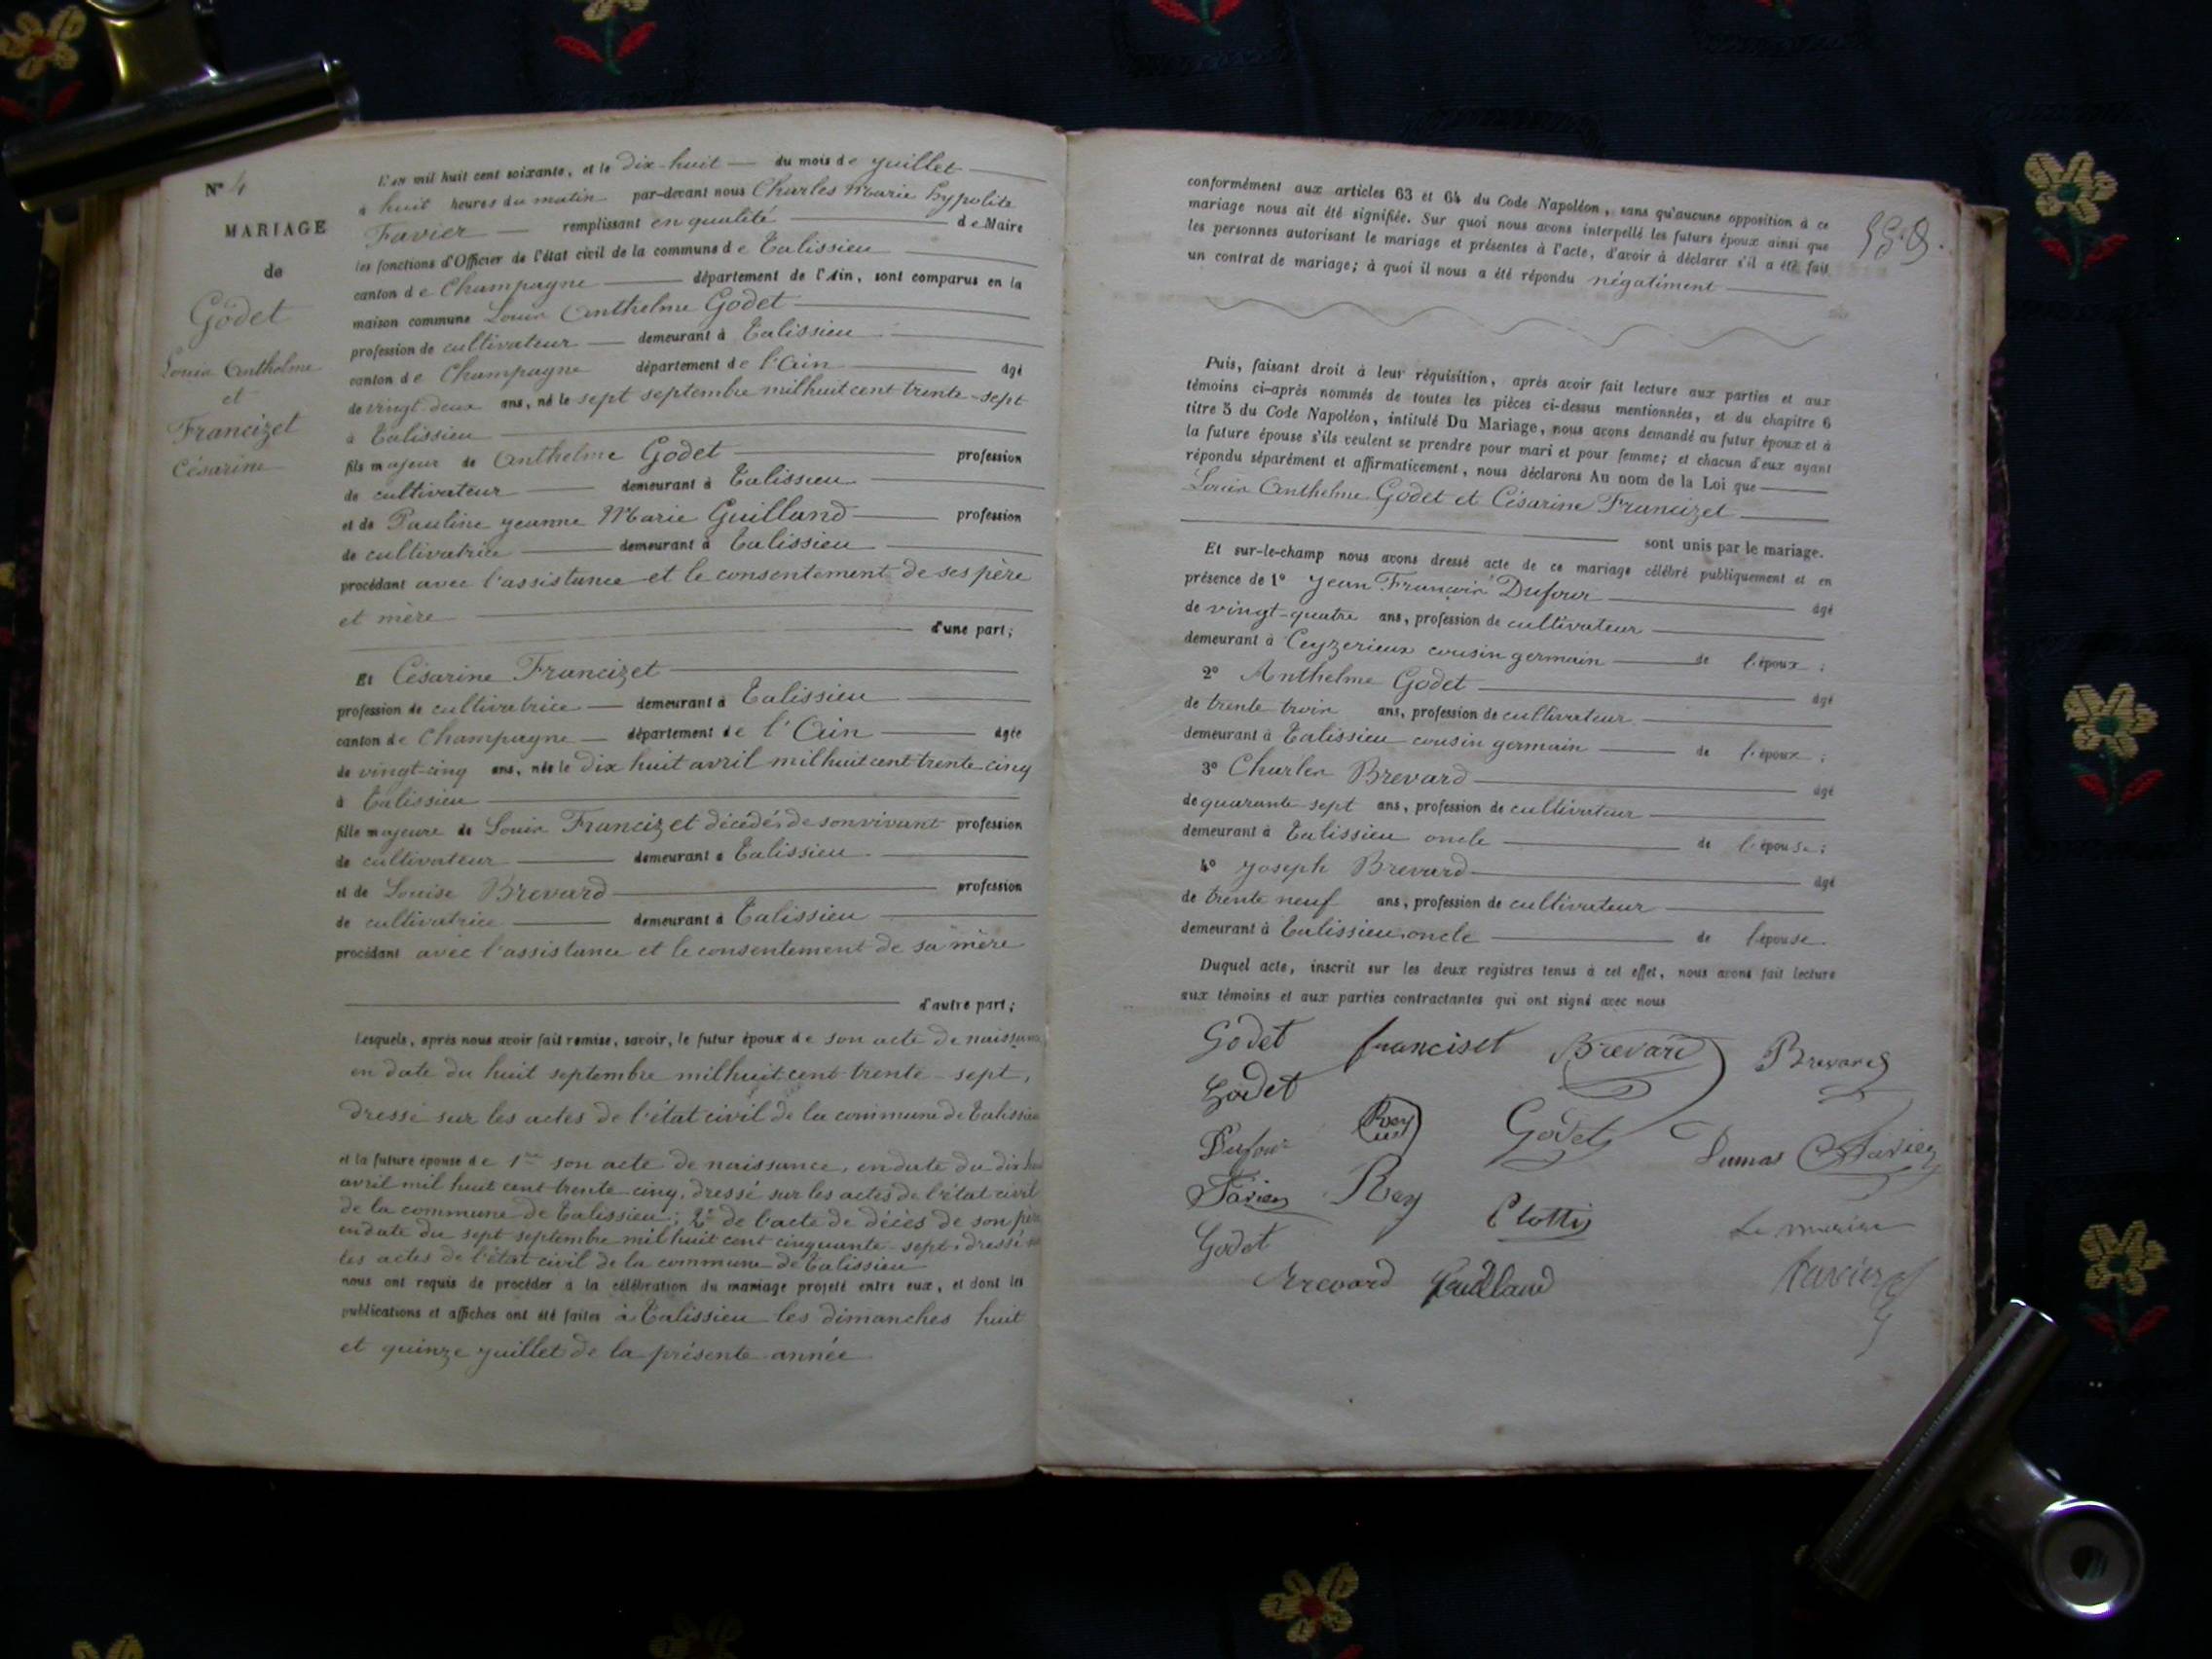 N° 4
MARIAGE
de
Godet
Louis Anthelme
et
Francizet
Césarine
L'an mil huit cent soixante, et le dix-huit du mois de juillet
à huit heures du matin par-devant nous Charles Marie Hypolite
Favier remplissant en qualité de Maire
les fonctions d'Officier de l'état civil de la commune de Talissieu
canton de Champagne département de l'Ain, sont comparus en la
maison commune Louis Anthelme Godet
profession de cultivateur demeurant à Talissieu
canton de Champagne département de l'Ain âgé
de vingt-deux ans, né le sept septembre mil huit cent trente-sept
à Talissieu
fils majeur de Anthelme Godet profession
de cultivateur demeurant à Talissieu
et de Pauline Jeanne Marie Guilland profession
de cultivatrice demeurant à Talissieu
procédant avec l'assistance et le consentement de ses père
et mère
d'une part;
Et Césarine Francizet
profession de cultivatrice demeurant à Talissieu
canton de Champagne département de l'Ain âgée
de vingt-cinq ans, née le dix huit avril mil huit cent trente-cinq
à Talissieu
fille majeure de Louis Francizet décédé, de son vivant profession
de cultivateur demeurant à Talissieu
et de Louise Brevard profession
de cultivatrice demeurant à Talissieu
procédant avec l'assistance et le consentement de sa mère
d'autre part;
Lesquels, après nous avoir fait remise, savoir, le futur époux de son acte de naissance
en date du huit septembre mil huit cent trente-sept,
dressé sur les actes de l'état civil de la commune de Talissieu
et la future épouse de 1° son acte de naissance, en date du dix huit
avril mil huit cent trente-cinq, dressé sur les actes de l'état civil
de la commune de Talissieu; 2° de l'acte de décès de son père
en date du sept septembre mil huit cent cinquante-sept, dressé sur
les actes de l'état civil de la commune de Talissieu
nous ont requis de procéder à la célébration du mariage projeté entre eux, et dont les
publications et affiches ont été faites à Talissieu les dimanches huit
et quinze juillet de la présente année
conformément aux articles 63 et 64 du Code Napoléon, sans qu'aucune opposition à ce
mariage nous ait été signifiée. Sur quoi nous avons interpellé les futurs époux ainsi que
les personnes autorisant le mariage et présentes à l'acte, d'avoir à déclarer s'il a été fait
un contrat de mariage; à quoi il nous a été répondu négatiment
Puis, faisant droit à leur réquisition, après avoir fait lecture aux parties et aux
témoins ci-après nommés de toutes les pièces ci-dessus mentionnées, et du chapitre 6
titre 5 du Code Napoléon, intitulé Du Mariage, nous avons demandé au futur époux et à
la future épouse s'ils veulent se prendre pour mari et pour femme; et chacun d'eux ayant
répondu séparément et affirmativement, nous déclarons Au nom de la Loi que
Louis Anthelme Godet et Césarine Francizet
sont unis par le mariage.
Et sur-le-champ nous avons dressé acte de ce mariage célébré publiquement et en
présence de 1° Jean François Dufour âgé
de vingt-quatre ans, profession de cultivateur
demeurant à Ceyzerieux cousin germain de l'époux;
2° Anthelme Godet âgé
de trente trois ans, profession de cultivateur
demeurant à Talissieu cousin germain de l'époux;
3° Charles Brevard âgé
de quarante-sept ans, profession de cultivateur
demeurant à Talissieu oncle de l'épouse;
4° Joseph Brevard âgé
de trente neuf ans, profession de cultivateur
demeurant à Talissieu, oncle de l'épouse.
Duquel acte, inscrit sur les deux registres tenus à cet effet, nous avons fait lecture
aux témoins et aux parties contractantes qui ont signé avec nous
Godet franciset Brevard Brevard
Godet
Dufour Rey Godet Dumas Favier
Favier Rey
Godet
Brevard Guilland
Le maire
Favier